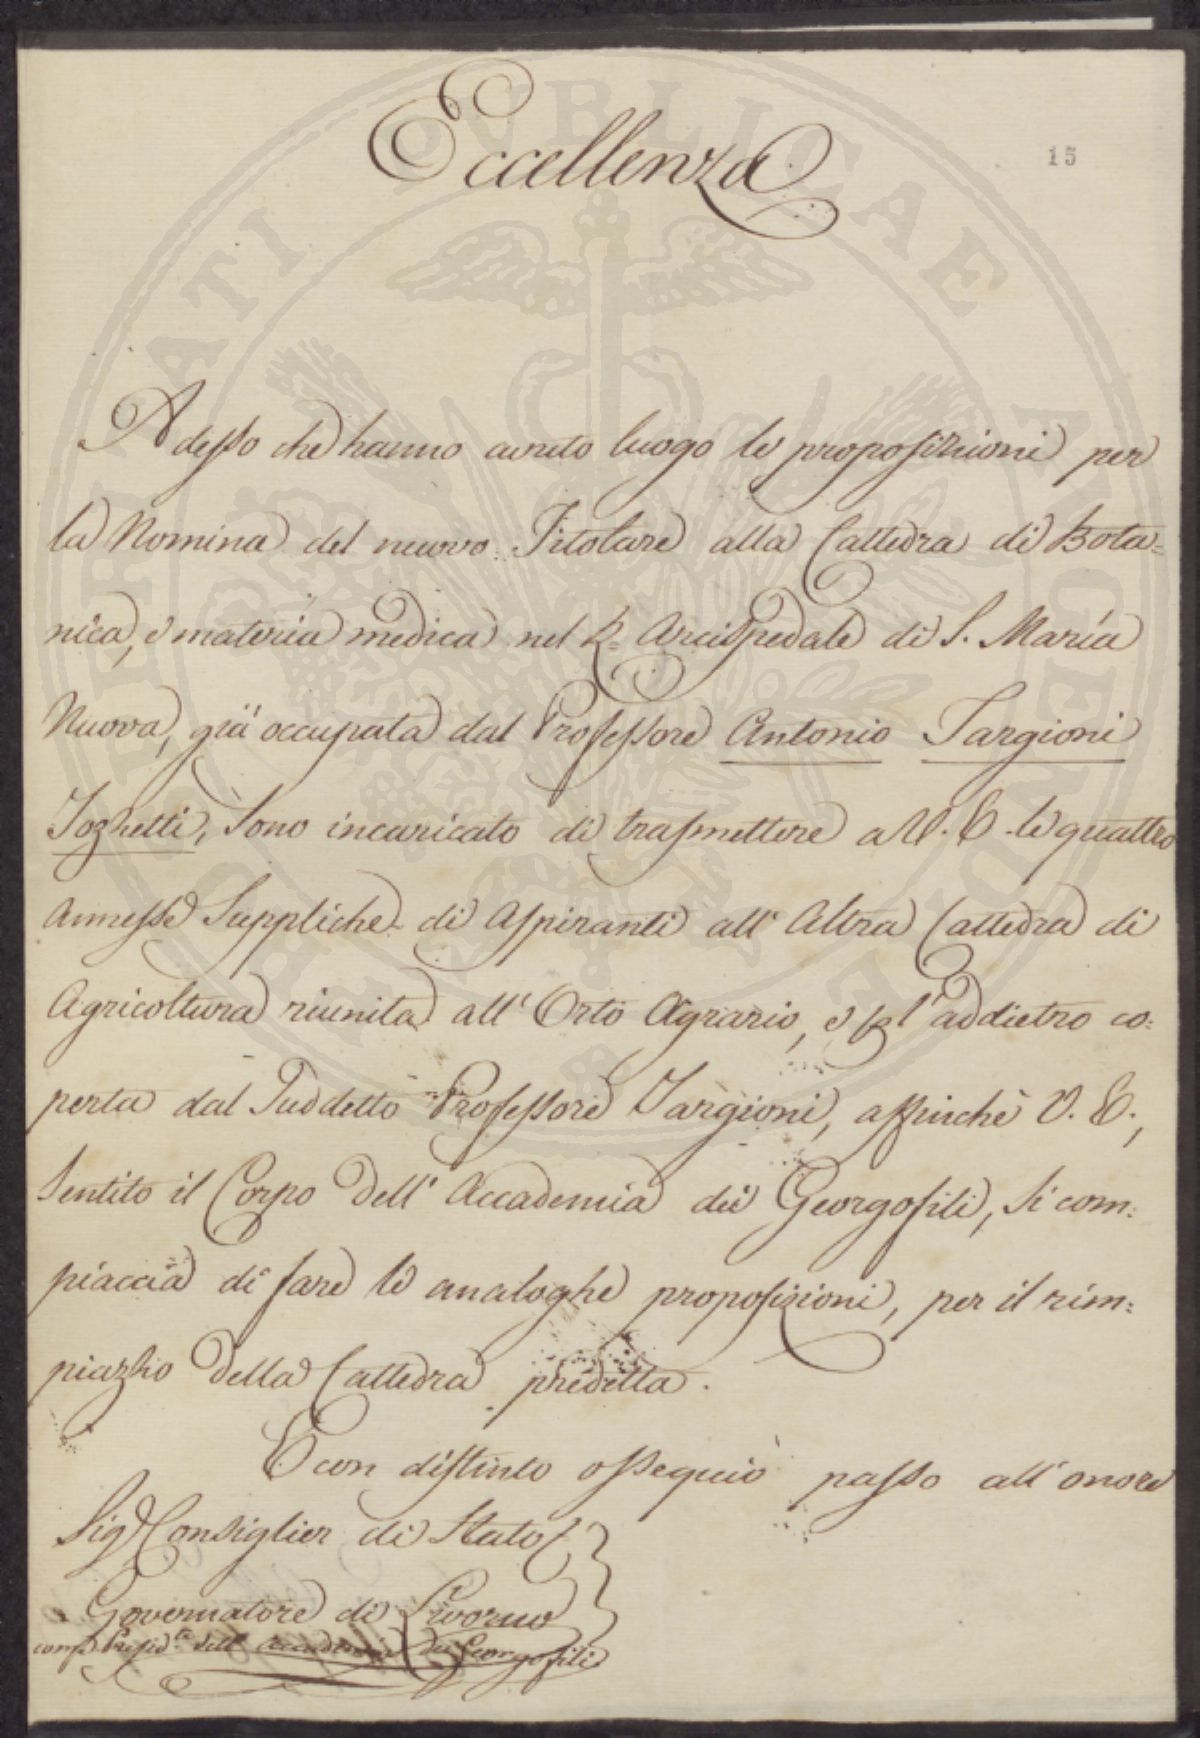 Eccellenza
15
Adesso che hanno avuto luogo le proposizioni per
la Nomina del nuovo Titolare alla Cattedra di Bota=
nica, e materia medica nel R. Arcispedale di S. Maria
Nuova, già occupata dal Professore Antonio Targioni
Tozzetti, Sono incaricato di trasmettere a V. E. le quattro
annesse Suppliche di Aspiranti all' Altra Cattedra di
Agricoltura riunita all' Orto Agrario, e pl' addietro co=
perta dal Suddetto Professore Targioni, affinchè V. E.,
Sentito il Corpo dell' Accademia dei Georgofili, Si com=
piaccia di fare le analoghe proposizioni, per il rim=
piazzo della Cattedra predetta.
E con distinto ossequio passo all' onore
Sig. Consiglier di Stato
Governatore di Livorno
come Presid.te dell' Accademia dei Georgofili